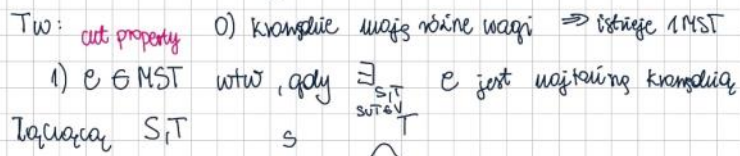 Tw: cut property 0) krawędzie mają różne wagi ⇒ istnieje 1 MST
1) e ∈ MST wtw, gdy ∃ S,T S∪T=V e jest najtańszą krawędzią
łączącą S,T S T